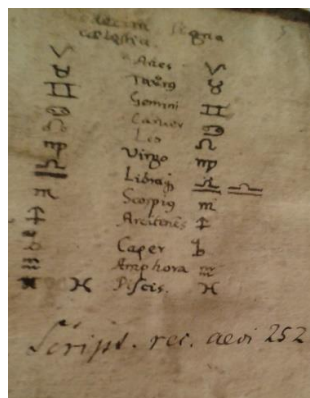 signa
♈ Aries ♈
♉ Taurus ♉
♊ Gemini ♊
♋ Cancer ♋
♌ Leo ♌
♍ Virgo ♍
♎ Libra ♎ ♎
♏ Scorpius ♏
♐ Arcitenens ♐
Caper ♑
♒ Amphora ♒
♓ Piscis. ♓
Script. rec. aevi 252